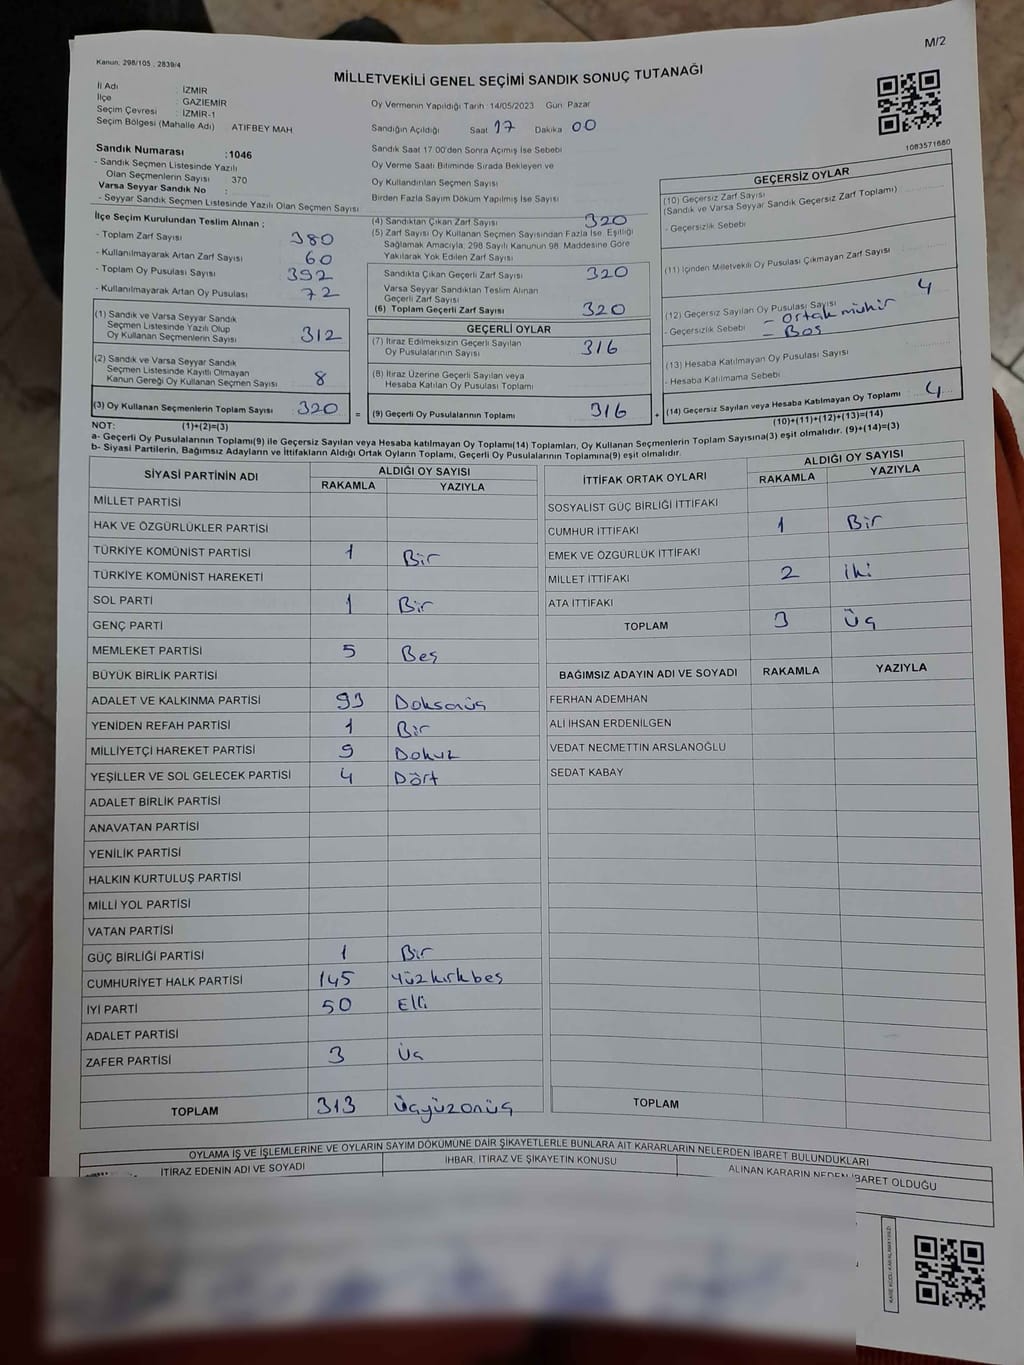 M/2
Kanun: 298/105 , 2839/4
MİLLETVEKİLİ GENEL SEÇİMİ SANDIK SONUÇ TUTANAĞI
İl Adı : İZMİR
İlçe : GAZİEMİR
Seçim Çevresi : İZMİR-1
Seçim Bölgesi (Mahalle Adı) ATIFBEY MAH
Sandık Numarası :1046
- Sandık Seçmen Listesinde Yazılı
Olan Seçmenlerin Sayısı : 370
Varsa Seyyar Sandık No :
- Seyyar Sandık Seçmen Listesinde Yazılı Olan Seçmen Sayısı
Oy Vermenin Yapıldığı Tarih : 14/05/2023 Gün: Pazar
Sandığın Açıldığı Saat 17 Dakika 00
Sandık Saat 17:00'den Sonra Açılmış İse Sebebi
Oy Verme Saati Bitiminde Sırada Bekleyen ve
Oy Kullandırılan Seçmen Sayısı
Birden Fazla Sayım Döküm Yapılmış İse Sayısı
1083571680
İlçe Seçim Kurulundan Teslim Alınan ;
- Toplam Zarf Sayısı 380
- Kullanılmayarak Artan Zarf Sayısı 60
- Toplam Oy Pusulası Sayısı 392
- Kullanılmayarak Artan Oy Pusulası 72
(1) Sandık ve Varsa Seyyar Sandık
Seçmen Listesinde Yazılı Olup
Oy Kullanan Seçmenlerin Sayısı 312
(2) Sandık ve Varsa Seyyar Sandık
Seçmen Listesinde Kayıtlı Olmayan
Kanun Gereği Oy Kullanan Seçmen Sayısı 8
(3) Oy Kullanan Seçmenlerin Toplam Sayısı 320
(4) Sandıktan Çıkan Zarf Sayısı 320
(5) Zarf Sayısı Oy Kullanan Seçmen Sayısından Fazla İse, Eşitliği
Sağlamak Amacıyla, 298 Sayılı Kanunun 98. Maddesine Göre
Yakılarak Yok Edilen Zarf Sayısı
Sandıkta Çıkan Geçerli Zarf Sayısı 320
Varsa Seyyar Sandıktan Teslim Alınan
Geçerli Zarf Sayısı
(6) Toplam Geçerli Zarf Sayısı 320
GEÇERLİ OYLAR
(7) İtiraz Edilmeksizin Geçerli Sayılan
Oy Pusulalarının Sayısı 316
(8) İtiraz Üzerine Geçerli Sayılan veya
Hesaba Katılan Oy Pusulası Toplamı
= (9) Geçerli Oy Pusulalarının Toplamı 316 +
GEÇERSİZ OYLAR
(10) Geçersiz Zarf Sayısı
(Sandık ve Varsa Seyyar Sandık Geçersiz Zarf Toplamı)
- Geçersizlik Sebebi
(11) İçinden Milletvekili Oy Pusulası Çıkmayan Zarf Sayısı
(12) Geçersiz Sayılan Oy Pusulası Sayısı 4
- Geçersizlik Sebebi - Ortak mühür
- Boş
(13) Hesaba Katılmayan Oy Pusulası Sayısı
- Hesaba Katılmama Sebebi
(14) Geçersiz Sayılan veya Hesaba Katılmayan Oy Toplamı 4
NOT: (1)+(2)=(3)
(10)+(11)+(12)+(13)=(14)
a- Geçerli Oy Pusulalarının Toplamı(9) ile Geçersiz Sayılan veya Hesaba katılmayan Oy Toplamı(14) Toplamları, Oy Kullanan Seçmenlerin Toplam Sayısına(3) eşit olmalıdır. (9)+(14)=(3)
b- Siyasi Partilerin, Bağımsız Adayların ve İttifakların Aldığı Ortak Oyların Toplamı, Geçerli Oy Pusulalarının Toplamına(9) eşit olmalıdır.
SİYASİ PARTİNİN ADI ALDIĞI OY SAYISI
RAKAMLA YAZIYLA
MİLLET PARTİSİ
HAK VE ÖZGÜRLÜKLER PARTİSİ
TÜRKİYE KOMÜNİST PARTİSİ 1 Bir
TÜRKİYE KOMÜNİST HAREKETİ
SOL PARTİ 1 Bir
GENÇ PARTİ
MEMLEKET PARTİSİ 5 Beş
BÜYÜK BİRLİK PARTİSİ
ADALET VE KALKINMA PARTİSİ 93 Doksanüç
YENİDEN REFAH PARTİSİ 1 Bir
MİLLİYETÇİ HAREKET PARTİSİ 9 Dokuz
YEŞİLLER VE SOL GELECEK PARTİSİ 4 Dört
ADALET BİRLİK PARTİSİ
ANAVATAN PARTİSİ
YENİLİK PARTİSİ
HALKIN KURTULUŞ PARTİSİ
MİLLİ YOL PARTİSİ
VATAN PARTİSİ
GÜÇ BİRLİĞİ PARTİSİ 1 Bir
CUMHURİYET HALK PARTİSİ 145 Yüzkırkbeş
İYİ PARTİ 50 Elli
ADALET PARTİSİ
ZAFER PARTİSİ 3 Üç
TOPLAM 313 Üçyüzonüç
İTTİFAK ORTAK OYLARI ALDIĞI OY SAYISI
RAKAMLA YAZIYLA
SOSYALİST GÜÇ BİRLİĞİ İTTİFAKI
CUMHUR İTTİFAKI 1 Bir
EMEK VE ÖZGÜRLÜK İTTİFAKI
MİLLET İTTİFAKI 2 İki
ATA İTTİFAKI
TOPLAM 3 Üç
BAĞIMSIZ ADAYIN ADI VE SOYADI RAKAMLA YAZIYLA
FERHAN ADEMHAN
ALİ İHSAN ERDENİLGEN
VEDAT NECMETTİN ARSLANOĞLU
SEDAT KABAY
TOPLAM
OYLAMA İŞ VE İŞLEMLERİNE VE OYLARIN SAYIM DÖKÜMÜNE DAİR ŞİKAYETLERLE BUNLARA AİT KARARLARIN NELERDEN İBARET BULUNDUKLARI
İTİRAZ EDENİN ADI VE SOYADI İHBAR, İTİRAZ VE ŞİKAYETİN KONUSU ALINAN KARARIN NEDEN İBARET OLDUĞU